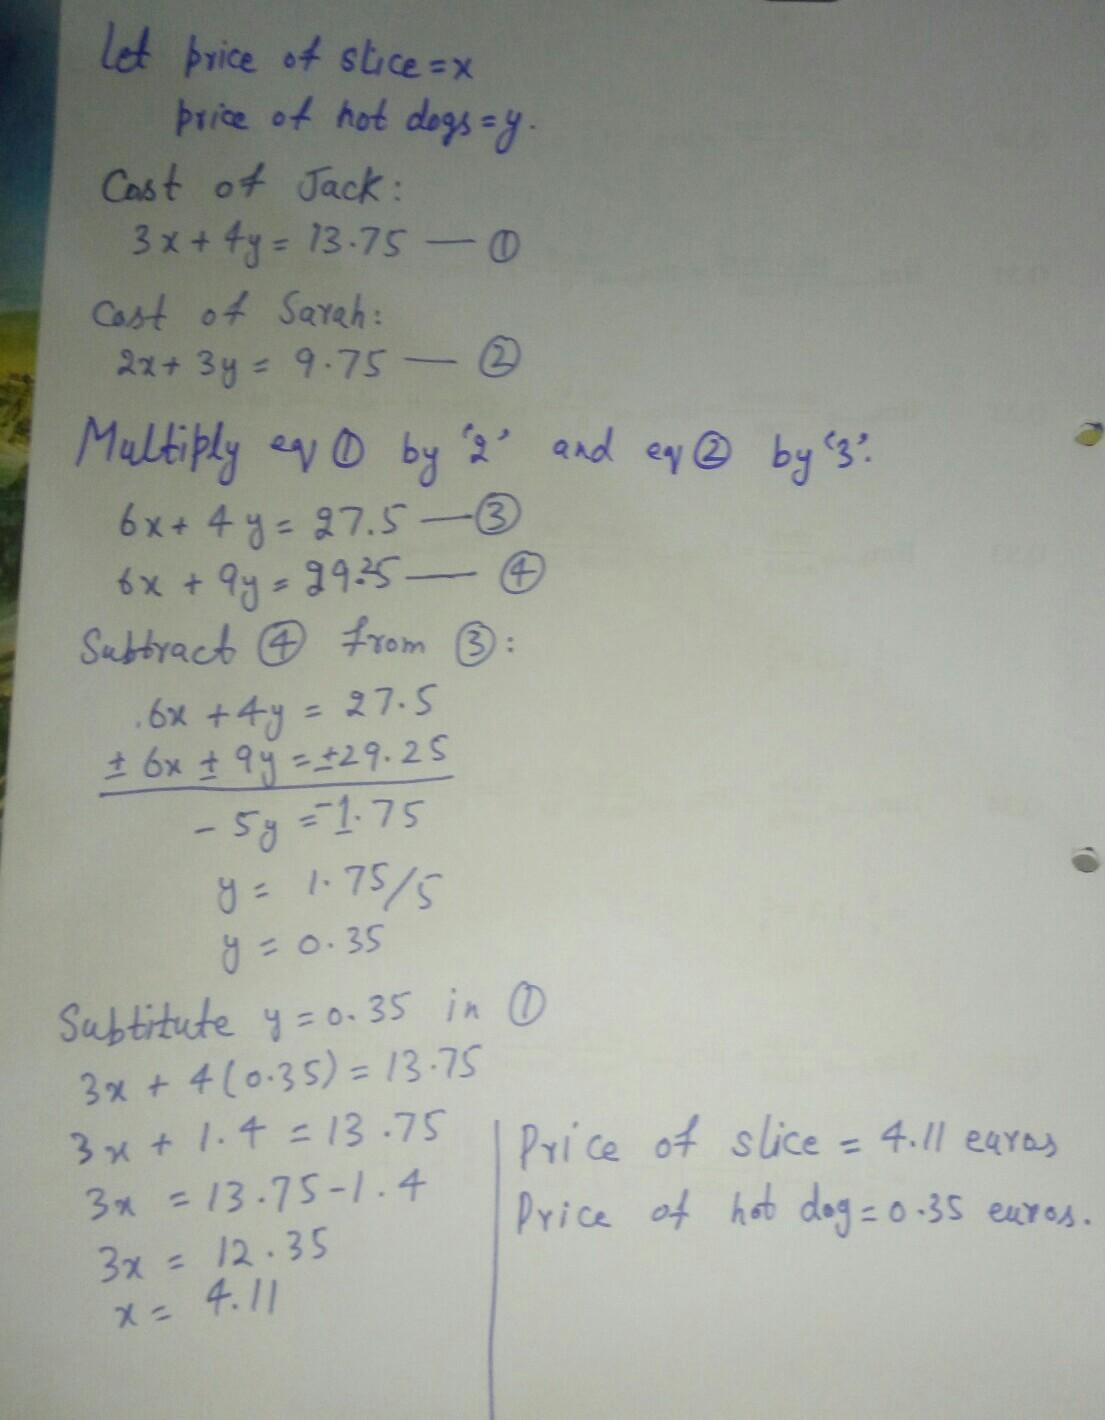 Let price of slice = x
price of hot dogs = y.
Cost of Jack:
3x + 4y = 13.75 — ①
Cost of Sarah:
2x + 3y = 9.75 — ②
Multiply eq ① by '2' and eq ② by '3'.
6x + 4y = 27.5 — ③
6x + 9y = 29.25 — ④
Subtract ④ from ③:
6x + 4y = 27.5
± 6x ± 9y = ±29.25
- 5y = -1.75
y = 1.75/5
y = 0.35
Subtitute y = 0.35 in ①
3x + 4(0.35) = 13.75
3x + 1.4 = 13.75
3x = 13.75 - 1.4
3x = 12.35
x = 4.11
Price of slice = 4.11 euros
Price of hot dog = 0.35 euros.